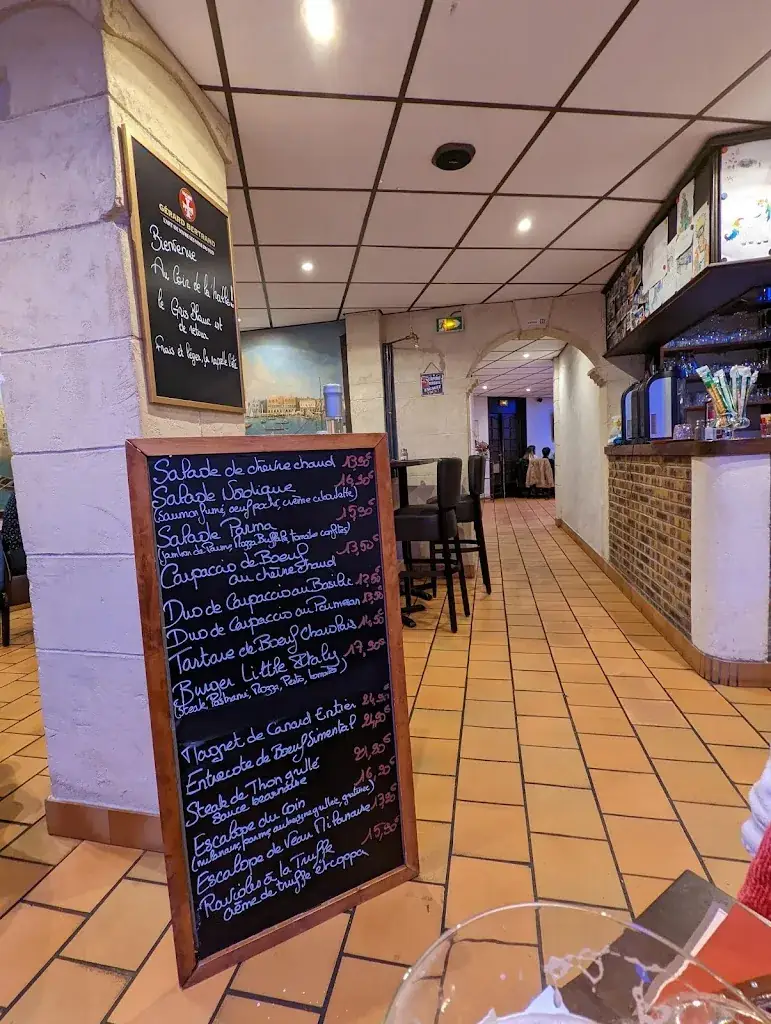 GÉRARD BERTRAND
Bienvenue
Au Coin de la halle!
le Gris Blanc est
de retour
Frais et léger, ça rappelle l'été
Salade de chèvre chaud 13,90€
Salade Nordique 16,90€
(saumon fumé, oeuf poché, crème ciboulette)
Salade Parma 15,90€
(jambon de Parme, Mozza Buffala, tomates confites)
Carpaccio de Boeuf 13,50€
au chèvre chaud
Duo de Carpaccio au Basilic
Duo de Carpaccio au Parmesan
Tartare de Boeuf Charolais
Burger Little Italy 17,90€
(Steak, Pastrami, Mozza, Pesto, tomates)
Magret de Canard Entier 24,90€
Entrecote de Boeuf Simental
Steak de Thon grillé 21,90€
sauce bearnaise
Escalope du Coin 16,90€
(milanaise, parme, aubergine grillée, gratinée)
Escalope de Veau Milanaise
Ravioles à la Truffe 15,90€
crème de truffe et coppa